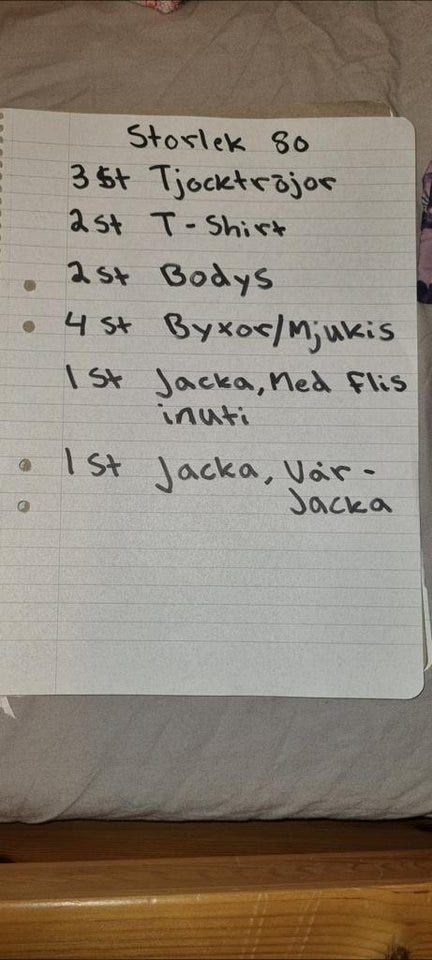 Storlek 80
3 st Tjocktröjor
2 st T-Shirt
2 st Bodys
4 st Byxor/Mjukis
1 st Jacka, Med Flis
inuti
1 st Jacka, Vår-
Jacka